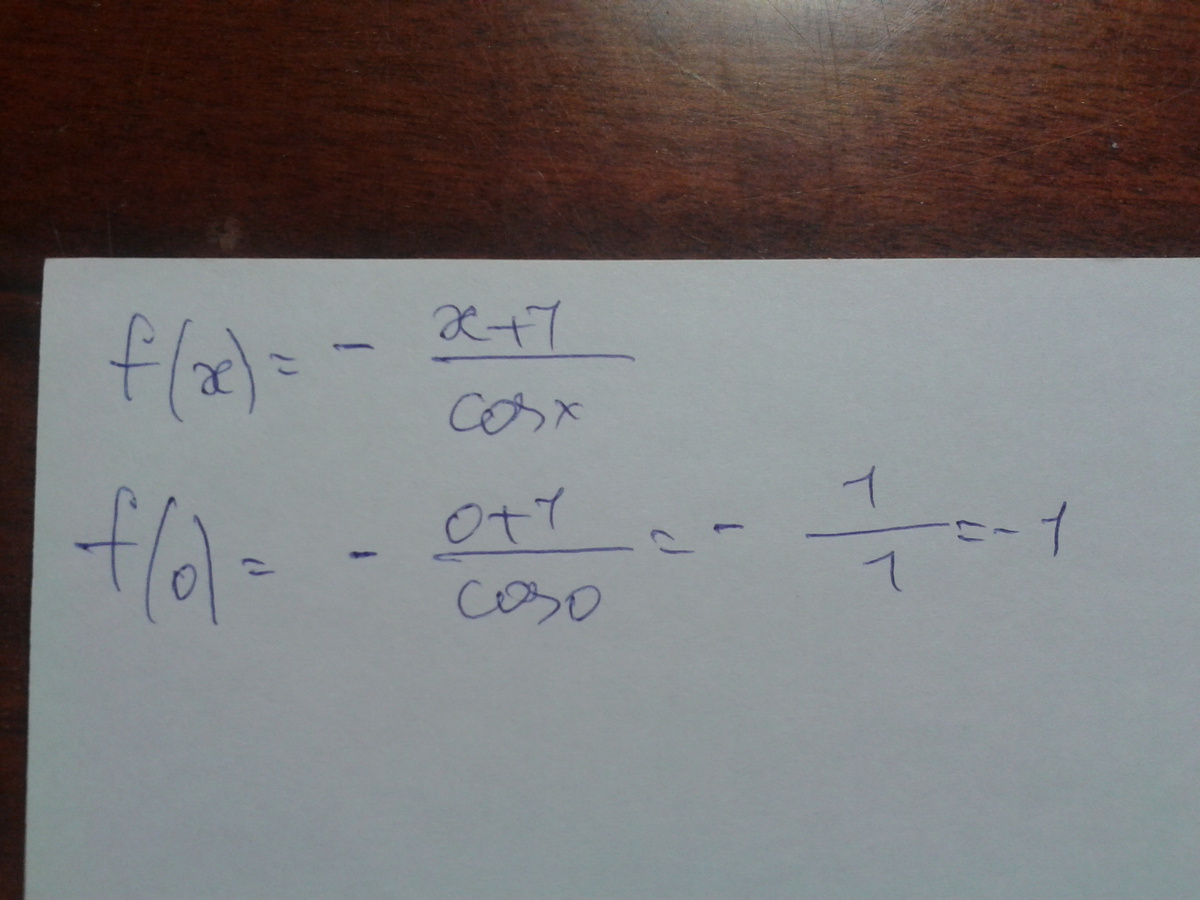 f(x) = - x+1 / cosx
f(0) = - 0+1 / cos0 = - 1 / 1 = - 1